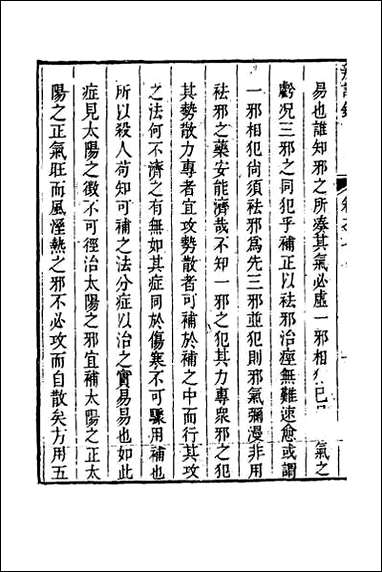 易也誰知邪之所湊其氣必虛一邪相犯已見氣之
虧況三邪之同犯乎補正以祛邪治痙無難速愈或謂
一邪相犯尚須祛邪為先三邪並犯則邪氣彌漫非用
祛邪之藥安能濟哉不知一邪之犯其力專眾邪之犯
其勢散力專者宜攻勢散者可補於補之中而行其攻
之法何不濟之有無如其症同於傷寒不可驟用補也
所以殺人苟知可補之法分症以治之實易易也如此
症見太陽之徵不可徑治太陽之邪宜補太陽之正太
陽之正氣旺而風溼熱之邪不必攻而自散矣方用五